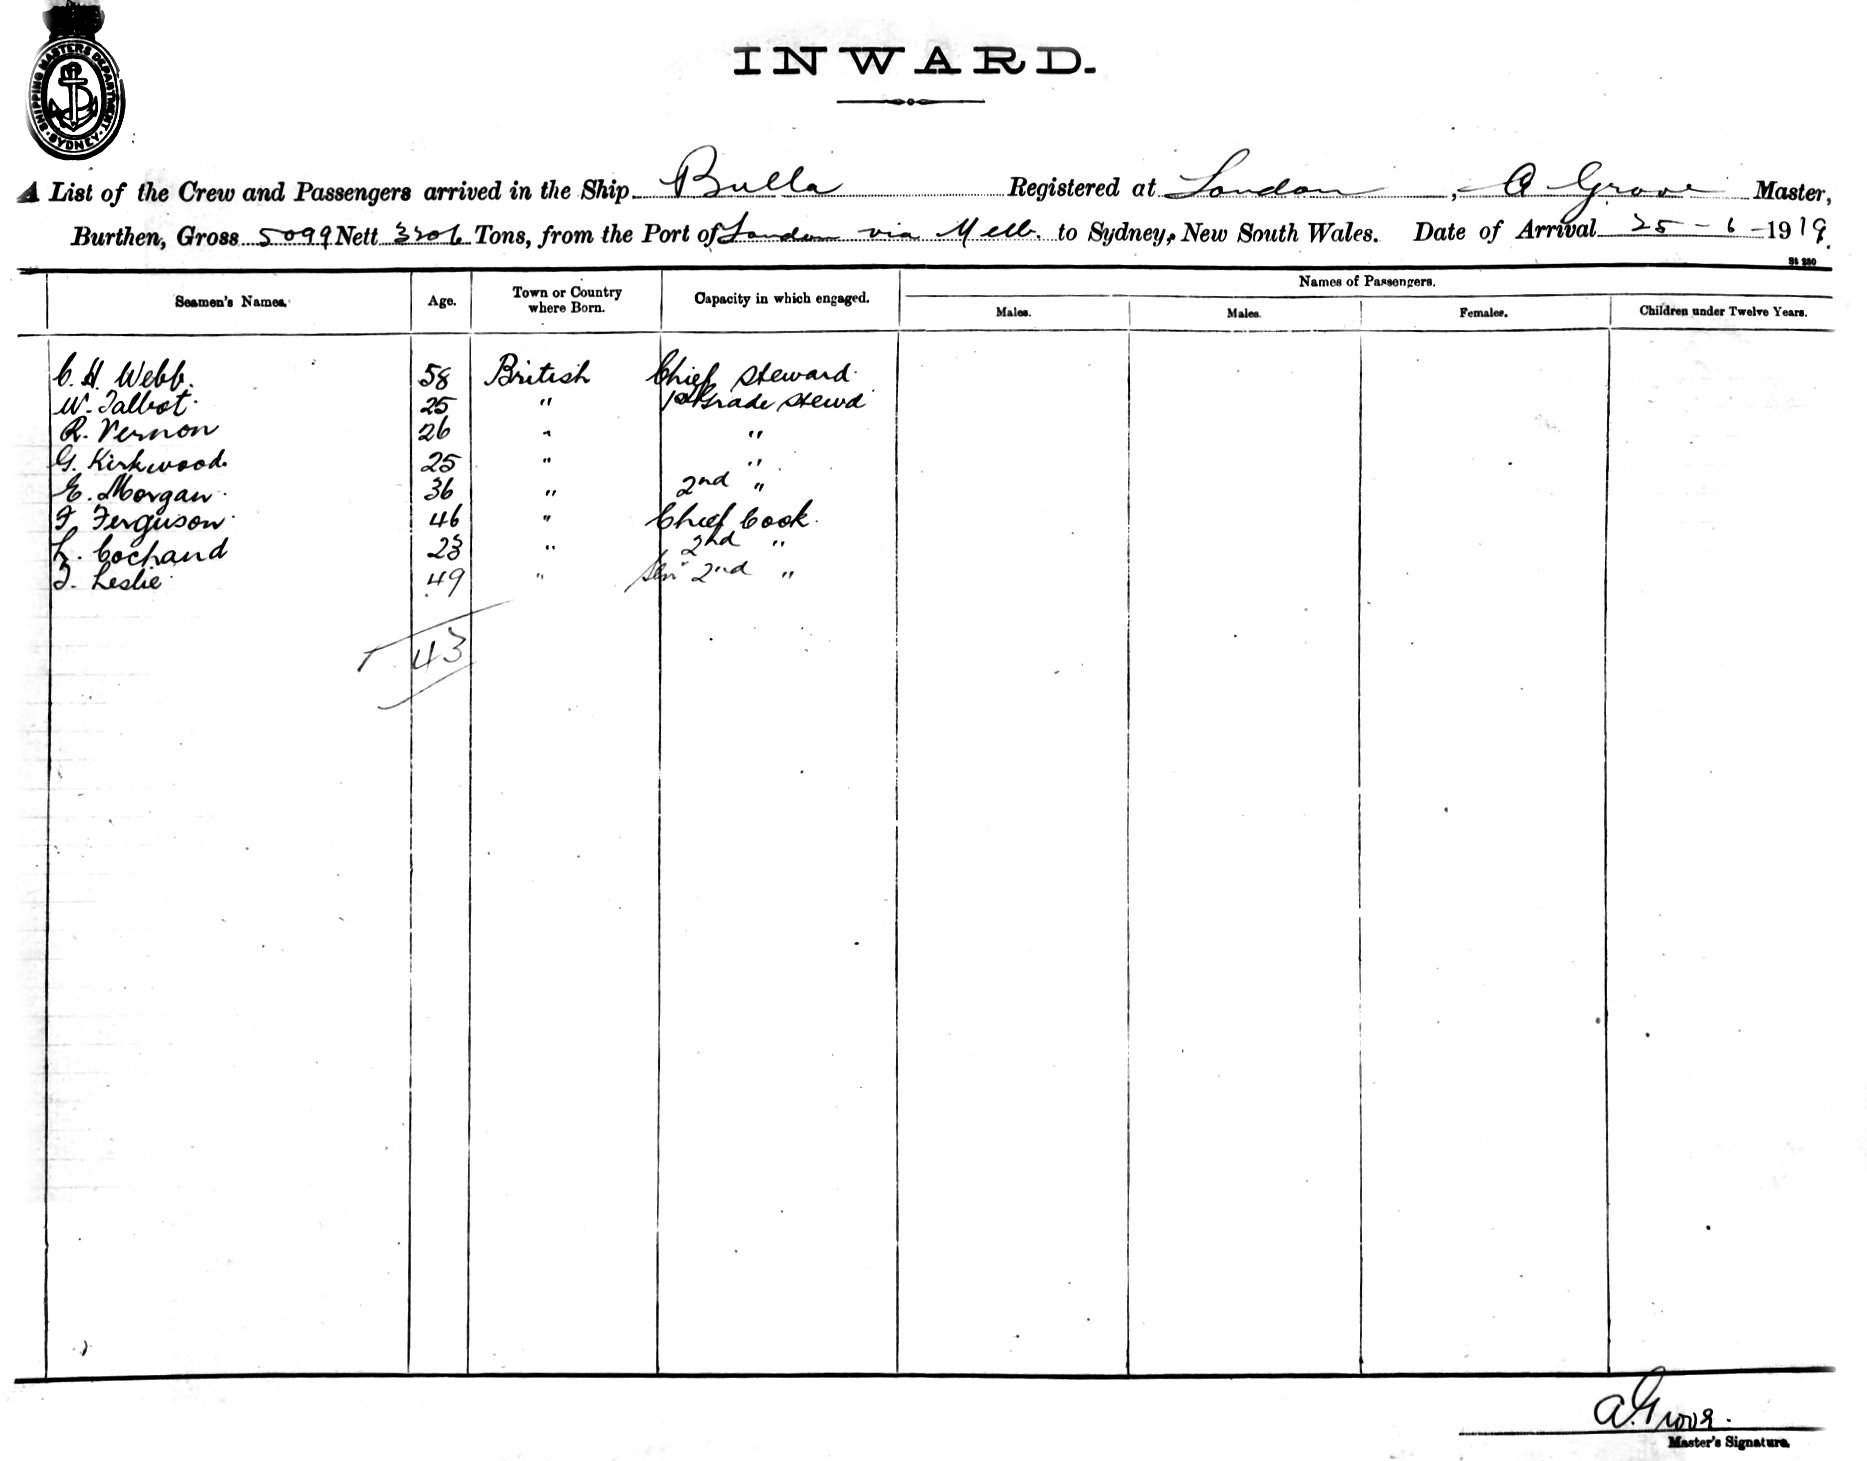 SHIPPING MASTERS DEPARTMENT
SYDNEY
INWARD.
A List of the Crew and Passengers arrived in the Ship Bulla Registered at London, A Grove Master,
Burthen, Gross 5099 Nett 3206 Tons, from the Port of London via Melb. to Sydney, New South Wales. Date of Arrival 25-6-1919.
St 280
Seamen's Names. Age. Town or Country where Born. Capacity in which engaged. Names of Passengers.
Males. Males. Females. Children under Twelve Years.
C. H. Webb. 58 British Chief Steward.
W. Talbot. 25 " 1st Grade Stewd
R. Vernon 26 " "
G. Kirkwood. 25 " "
E. Morgan. 36 " 2nd "
F Ferguson. 46 " Chief Cook.
L. Cochand 23 " 2nd "
T. Leslie. 49 " 2nd "
43
A. Grove.
Master's Signature.